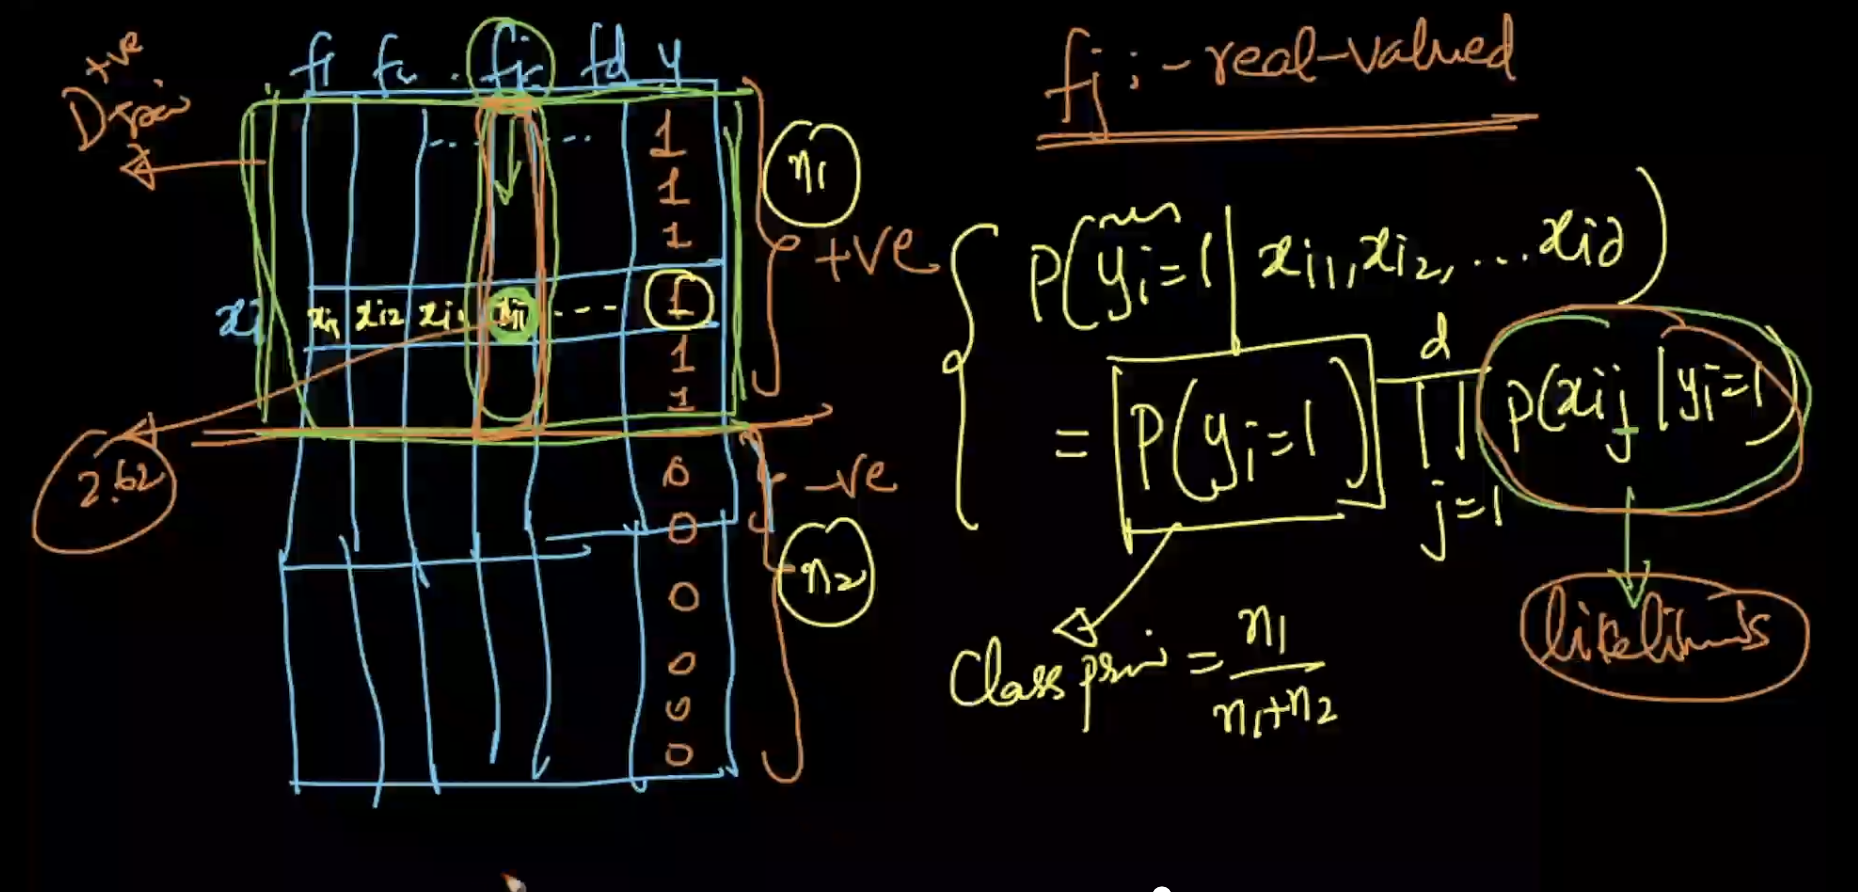 +ve
D train
f1 f2 . fj fd y
1
1
1
xi xi1 xi2 xi3 xij --- 1
1
1
2.62
0
0
0
0
0
0
n1
+ve
-ve
n2
fj :- real-valued
P(yi=1 | xi1, xi2, ... xid)
= P(yi=1) d ∏ j=1 P(xij | yi=1)
Class prior = n1 / n1+n2
likelihoods